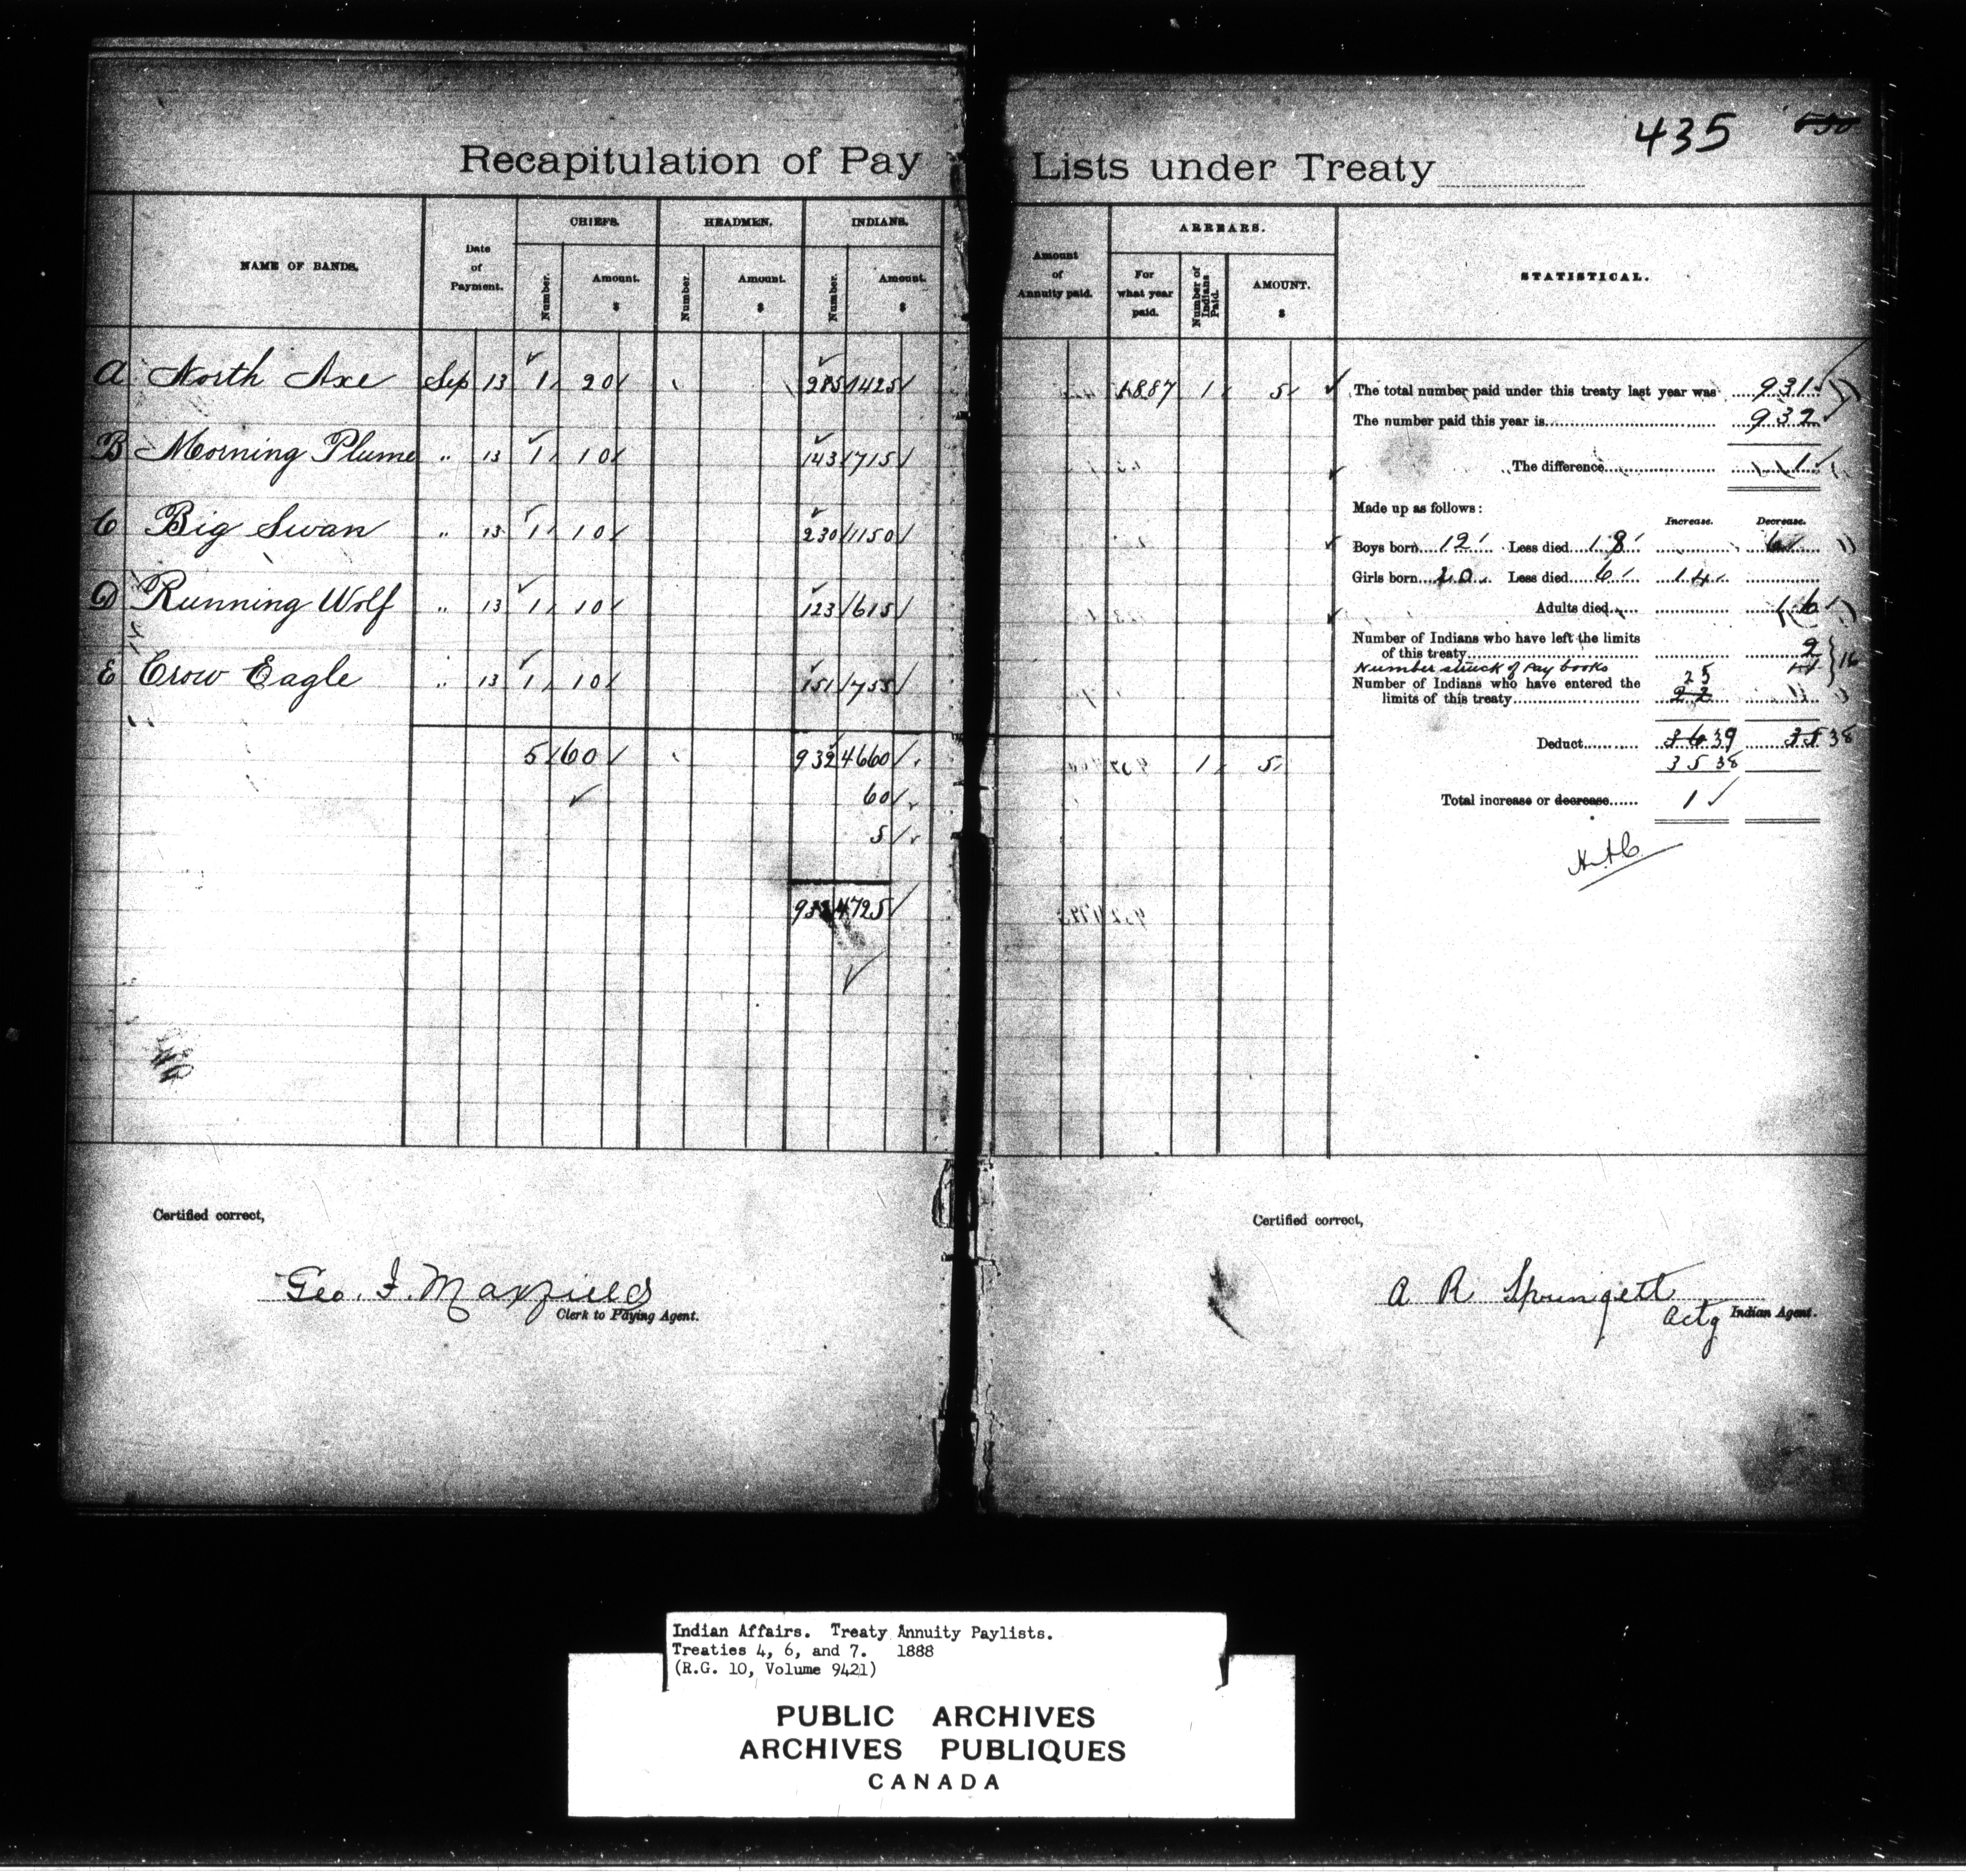 435
Recapitulation of Pay Lists under Treaty
NAME OF BANDS.
Date of Payment.
CHIEFS.
Number.
Amount. $
HEADMEN.
Number.
Amount. $
INDIANS.
Number.
Amount. $
Amount of Annuity paid.
ARREARS.
For what year paid.
Number of Indians Paid.
AMOUNT. $
STATISTICAL.
A North Axe Sep 13 1 20 285 1425 1887 1 5
B Morning Plume " 13 1 10 143 715
C Big Swan " 13 1 10 230 1150
D Running Wolf " 13 1 10 123 615
E Crow Eagle " 13 1 10 151 755
5 60 932 4660 1 5
60
5
932 4725
The total number paid under this treaty last year was 931
The number paid this year is 932
The difference 1
Made up as follows:
Increase. Decrease.
Boys born 12 Less died 18 6
Girls born 20 Less died 6 14
Adults died 16
Number of Indians who have left the limits
of this treaty 2
Number struck of Pay books 14 } 16
Number of Indians who have entered the 25
limits of this treaty 22
Deduct 36 39 35 38
35 38
Total increase or decrease 1
Certified correct,
Geo. F. Maxfield
Clerk to Paying Agent.
Certified correct,
A R Springett
Actg Indian Agent.
Indian Affairs. Treaty Annuity Paylists.
Treaties 4, 6, and 7. 1888
(R.G. 10, Volume 9421)
PUBLIC ARCHIVES
ARCHIVES PUBLIQUES
CANADA